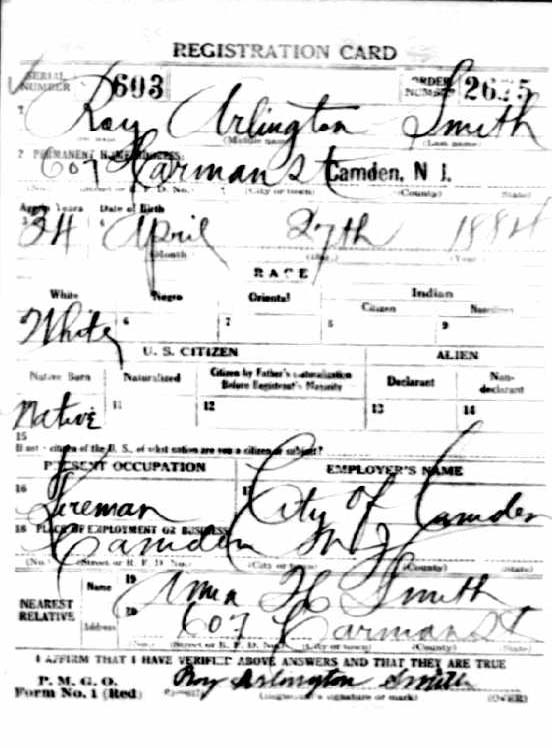 REGISTRATION CARD
SERIAL NUMBER 603 ORDER NUMBER 2625
1 Roy Arlington Smith
(Middle name) (Last name)
2 PERMANENT HOME ADDRESS:
607 Carman St Camden, N J.
(No.) (Street or R. F. D. No.) (City or town) (County) (State)
Age in Years Date of Birth
3 34 4 April 27th 1884
(Month) (Day) (Year)
RACE
White Negro Oriental Indian
Citizen Noncitizen
White 6 7 8 9
U. S. CITIZEN ALIEN
Native Born Naturalized Citizen by Father's Naturalization Before Registrant's Majority Declarant Non-declarant
Native 11 12 13 14
15
If not a citizen of the U. S., of what nation are you a citizen or subject?
PRESENT OCCUPATION EMPLOYER'S NAME
16 Fireman 17 City of Camden
18 PLACE OF EMPLOYMENT OR BUSINESS
Camden N J
(No.) (Street or R. F. D. No.) (City or town) (County) (State)
NEAREST RELATIVE
Name 19 Anna H Smith
Address 20 607 Carman St
(No.) (Street or R. F. D. No.) (City or town) (County) (State)
I AFFIRM THAT I HAVE VERIFIED ABOVE ANSWERS AND THAT THEY ARE TRUE
P. M. G. O.
Form No. 1 (Red) Roy Arlington Smith
(Registrant's signature or mark) (OVER)